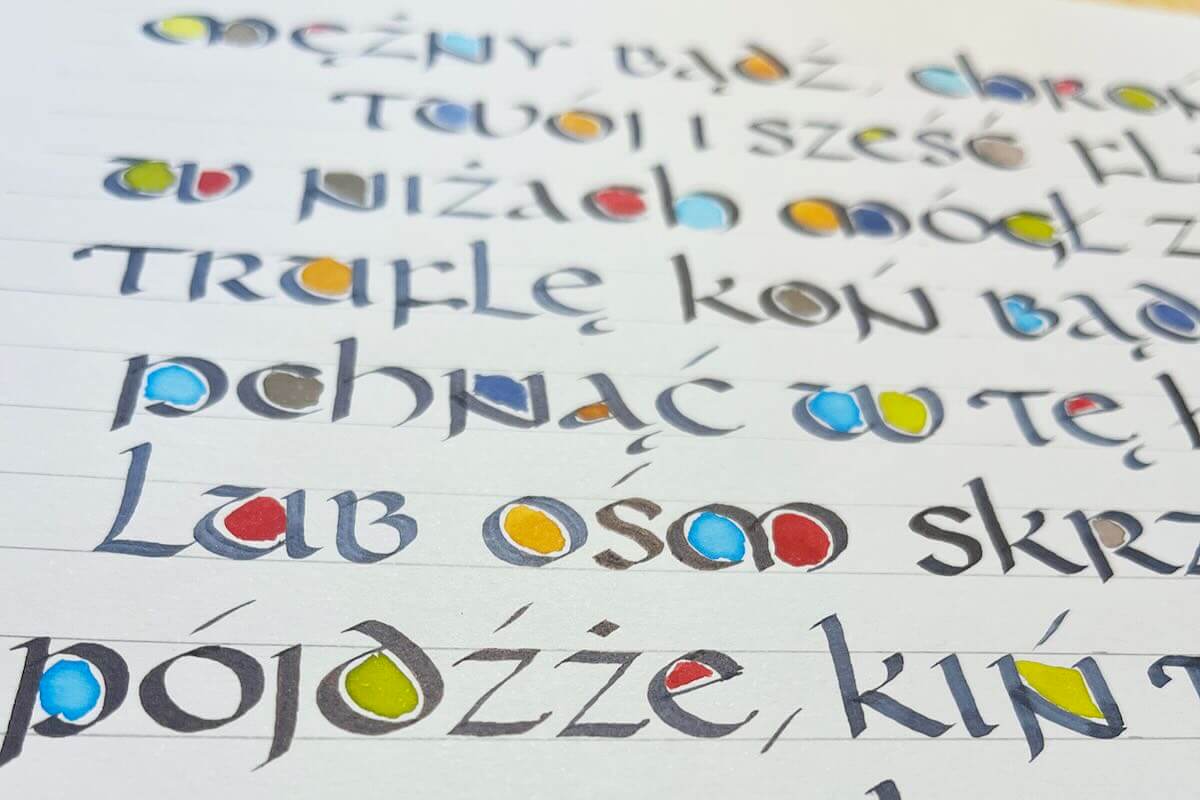 mężny bądź, chroń
twój i sześć fl
w niżach mógł z
truflę koń bąd
pchnąć w tę
lub ośm skrz
pójdźże, kiń t